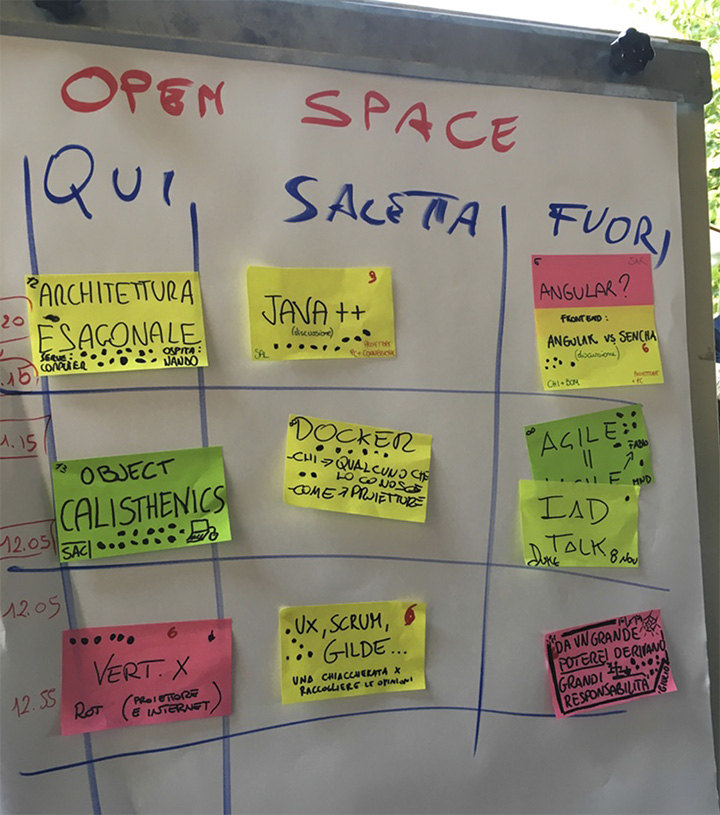 OPEN SPACE
QUI
SALETTA
FUORI
20
.15
12
ARCHITETTURA
ESAGONALE
SERVE:
COMPUTER
OSPITA:
NANDO
9
JAVA ++
(discussione)
SAL
SAR
ANGULAR?
FRONTEND:
ANGULAR vs SENCHA
(discussione)
6
CHI + DOM
PROIETTORE
+ PC
1.15
12.05
13
OBJECT
CALISTHENICS
SAC
DOCKER
-CHI → QUALCUNO CHE
LO CONOSCE
-COME → PROIETTORE
AGILE
=
FABIO
IAD
TALK
DUKE
8 NOV
12.05
12.55
6
VERT.X
ROT
(PROIETTORE
E INTERNET)
6
UX, SCRUM,
GILDE...
UNA CHIACCHERATA X
RACCOLLIERE LE OPINIONI
DA UN GRANDE
POTERE DERIVANO
GRANDI
RESPONSABILITÀ
GIULIO